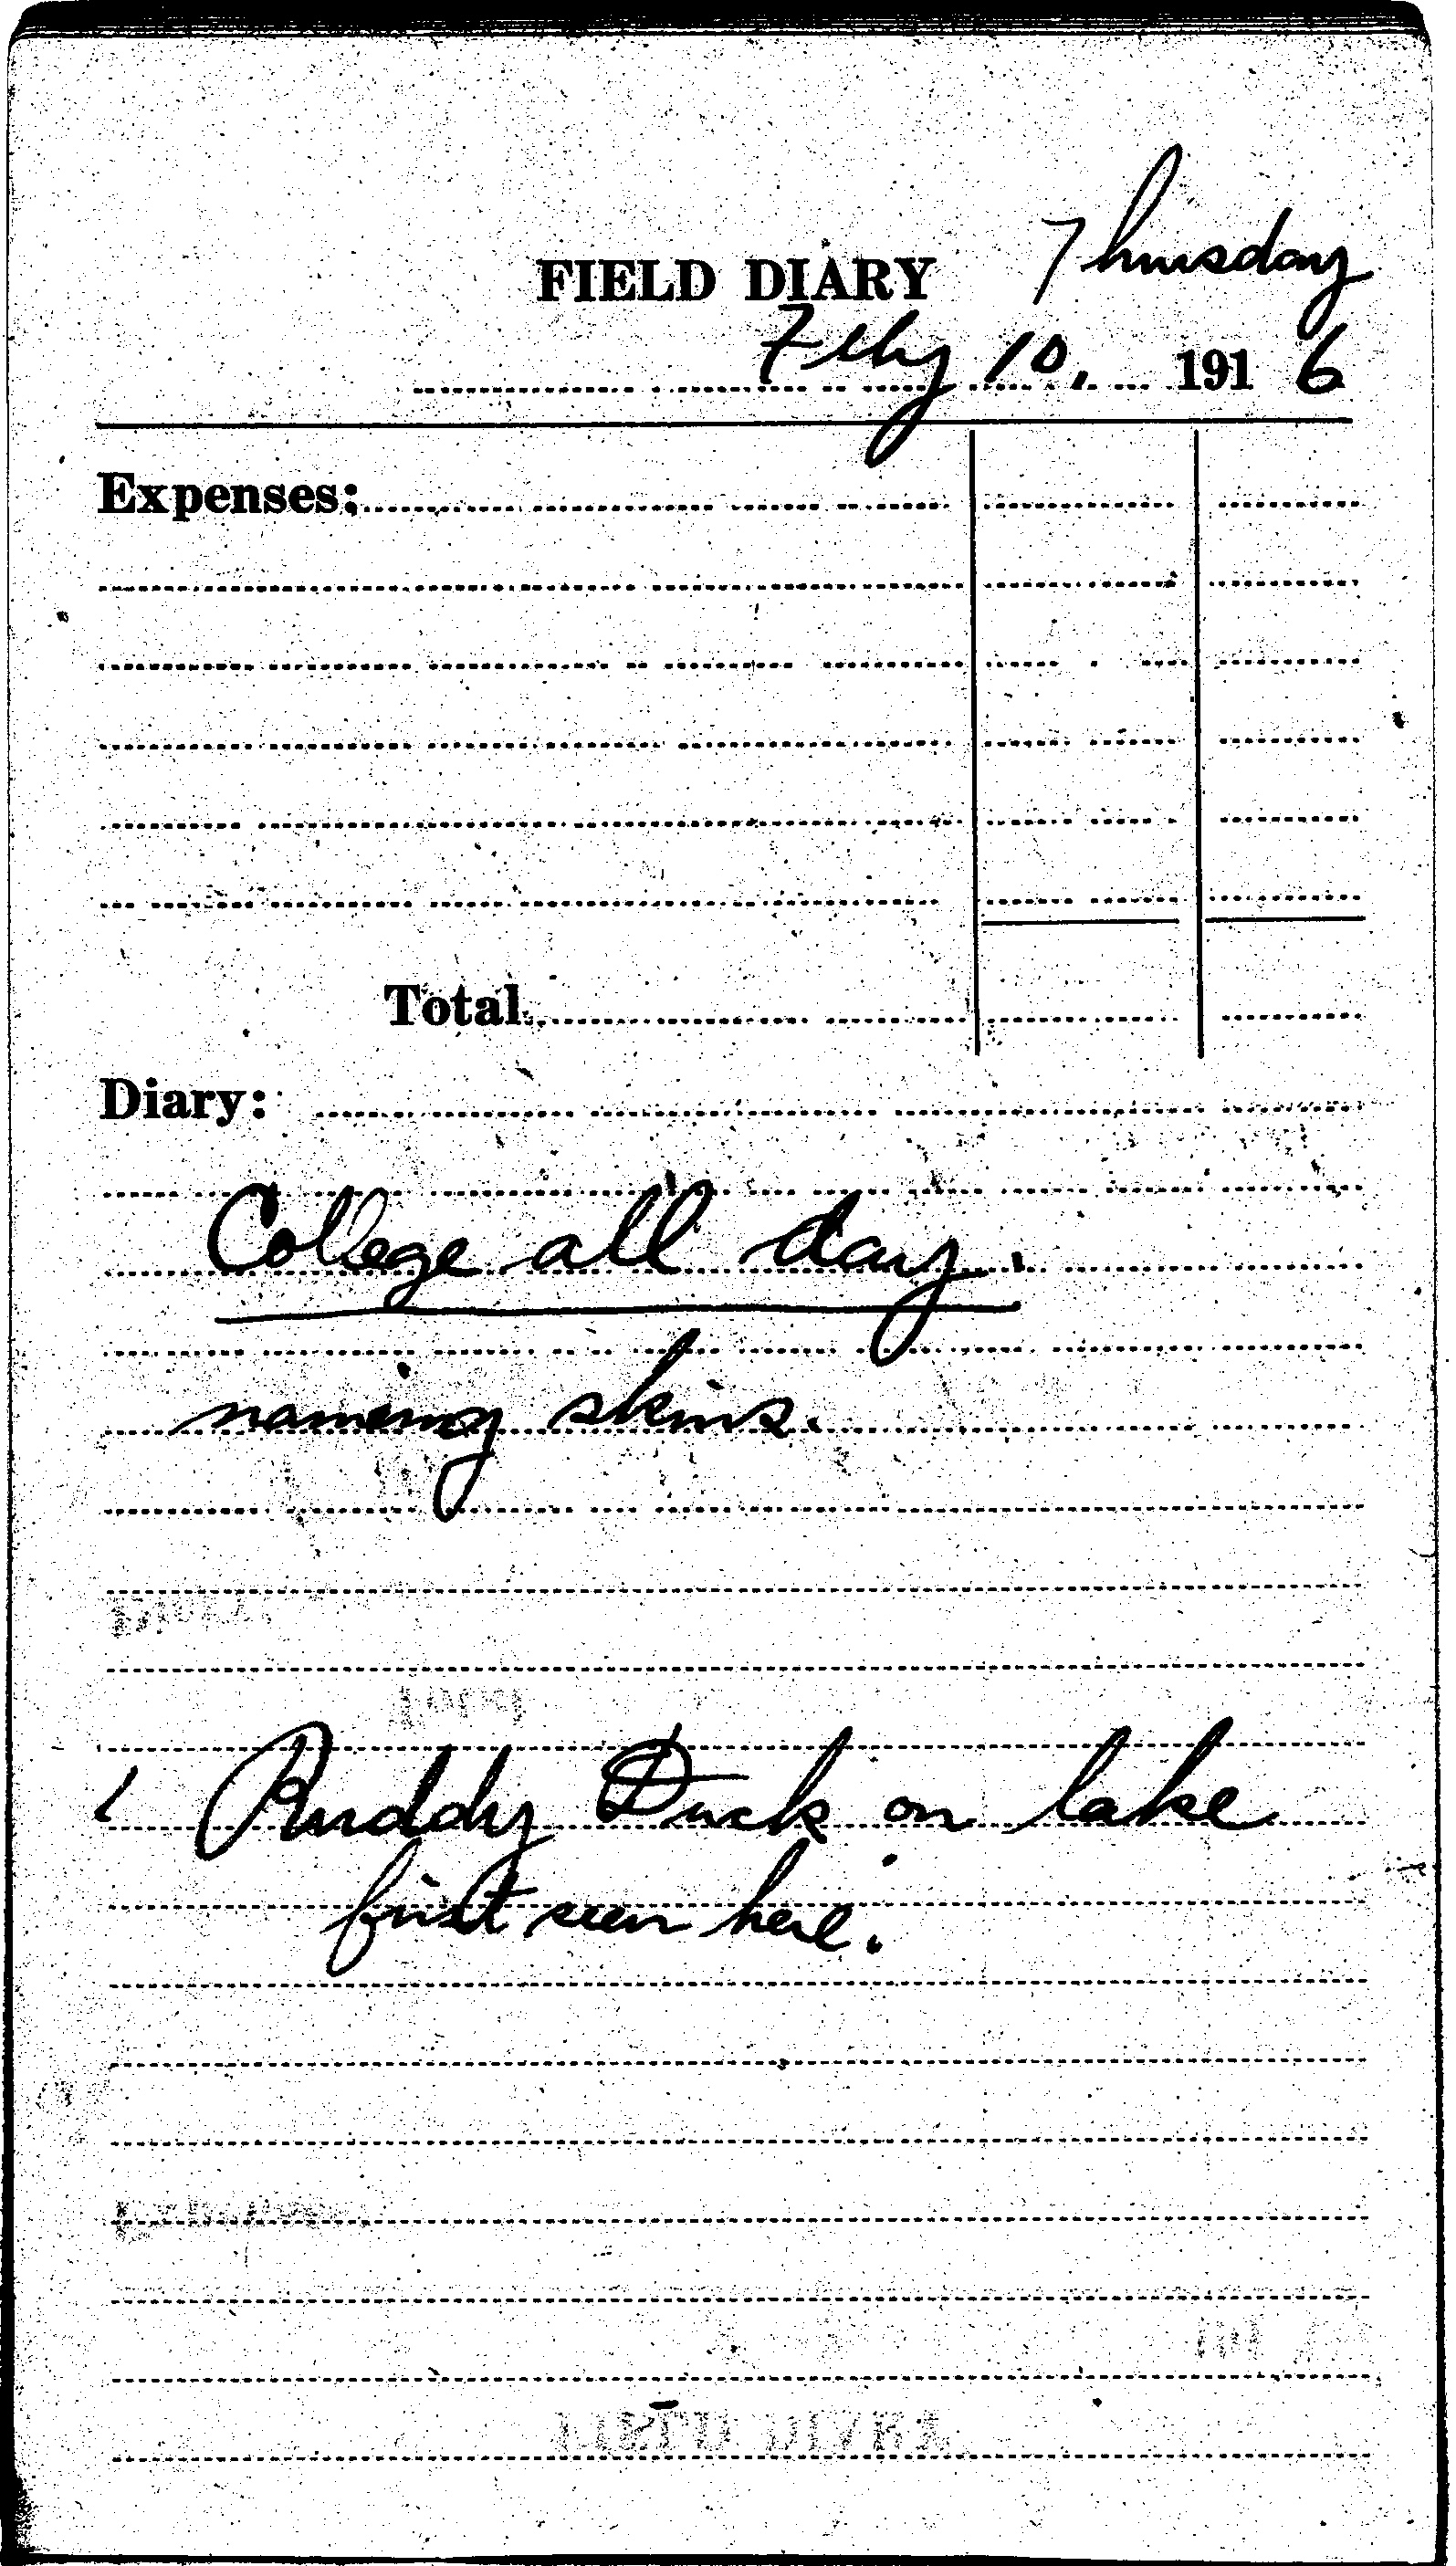 Thursday
FIELD DIARY
Feby 10, 1916
Expenses:
Total
Diary:
College all day.
nameing skins.
1 Ruddy Duck on lake
first seen here.